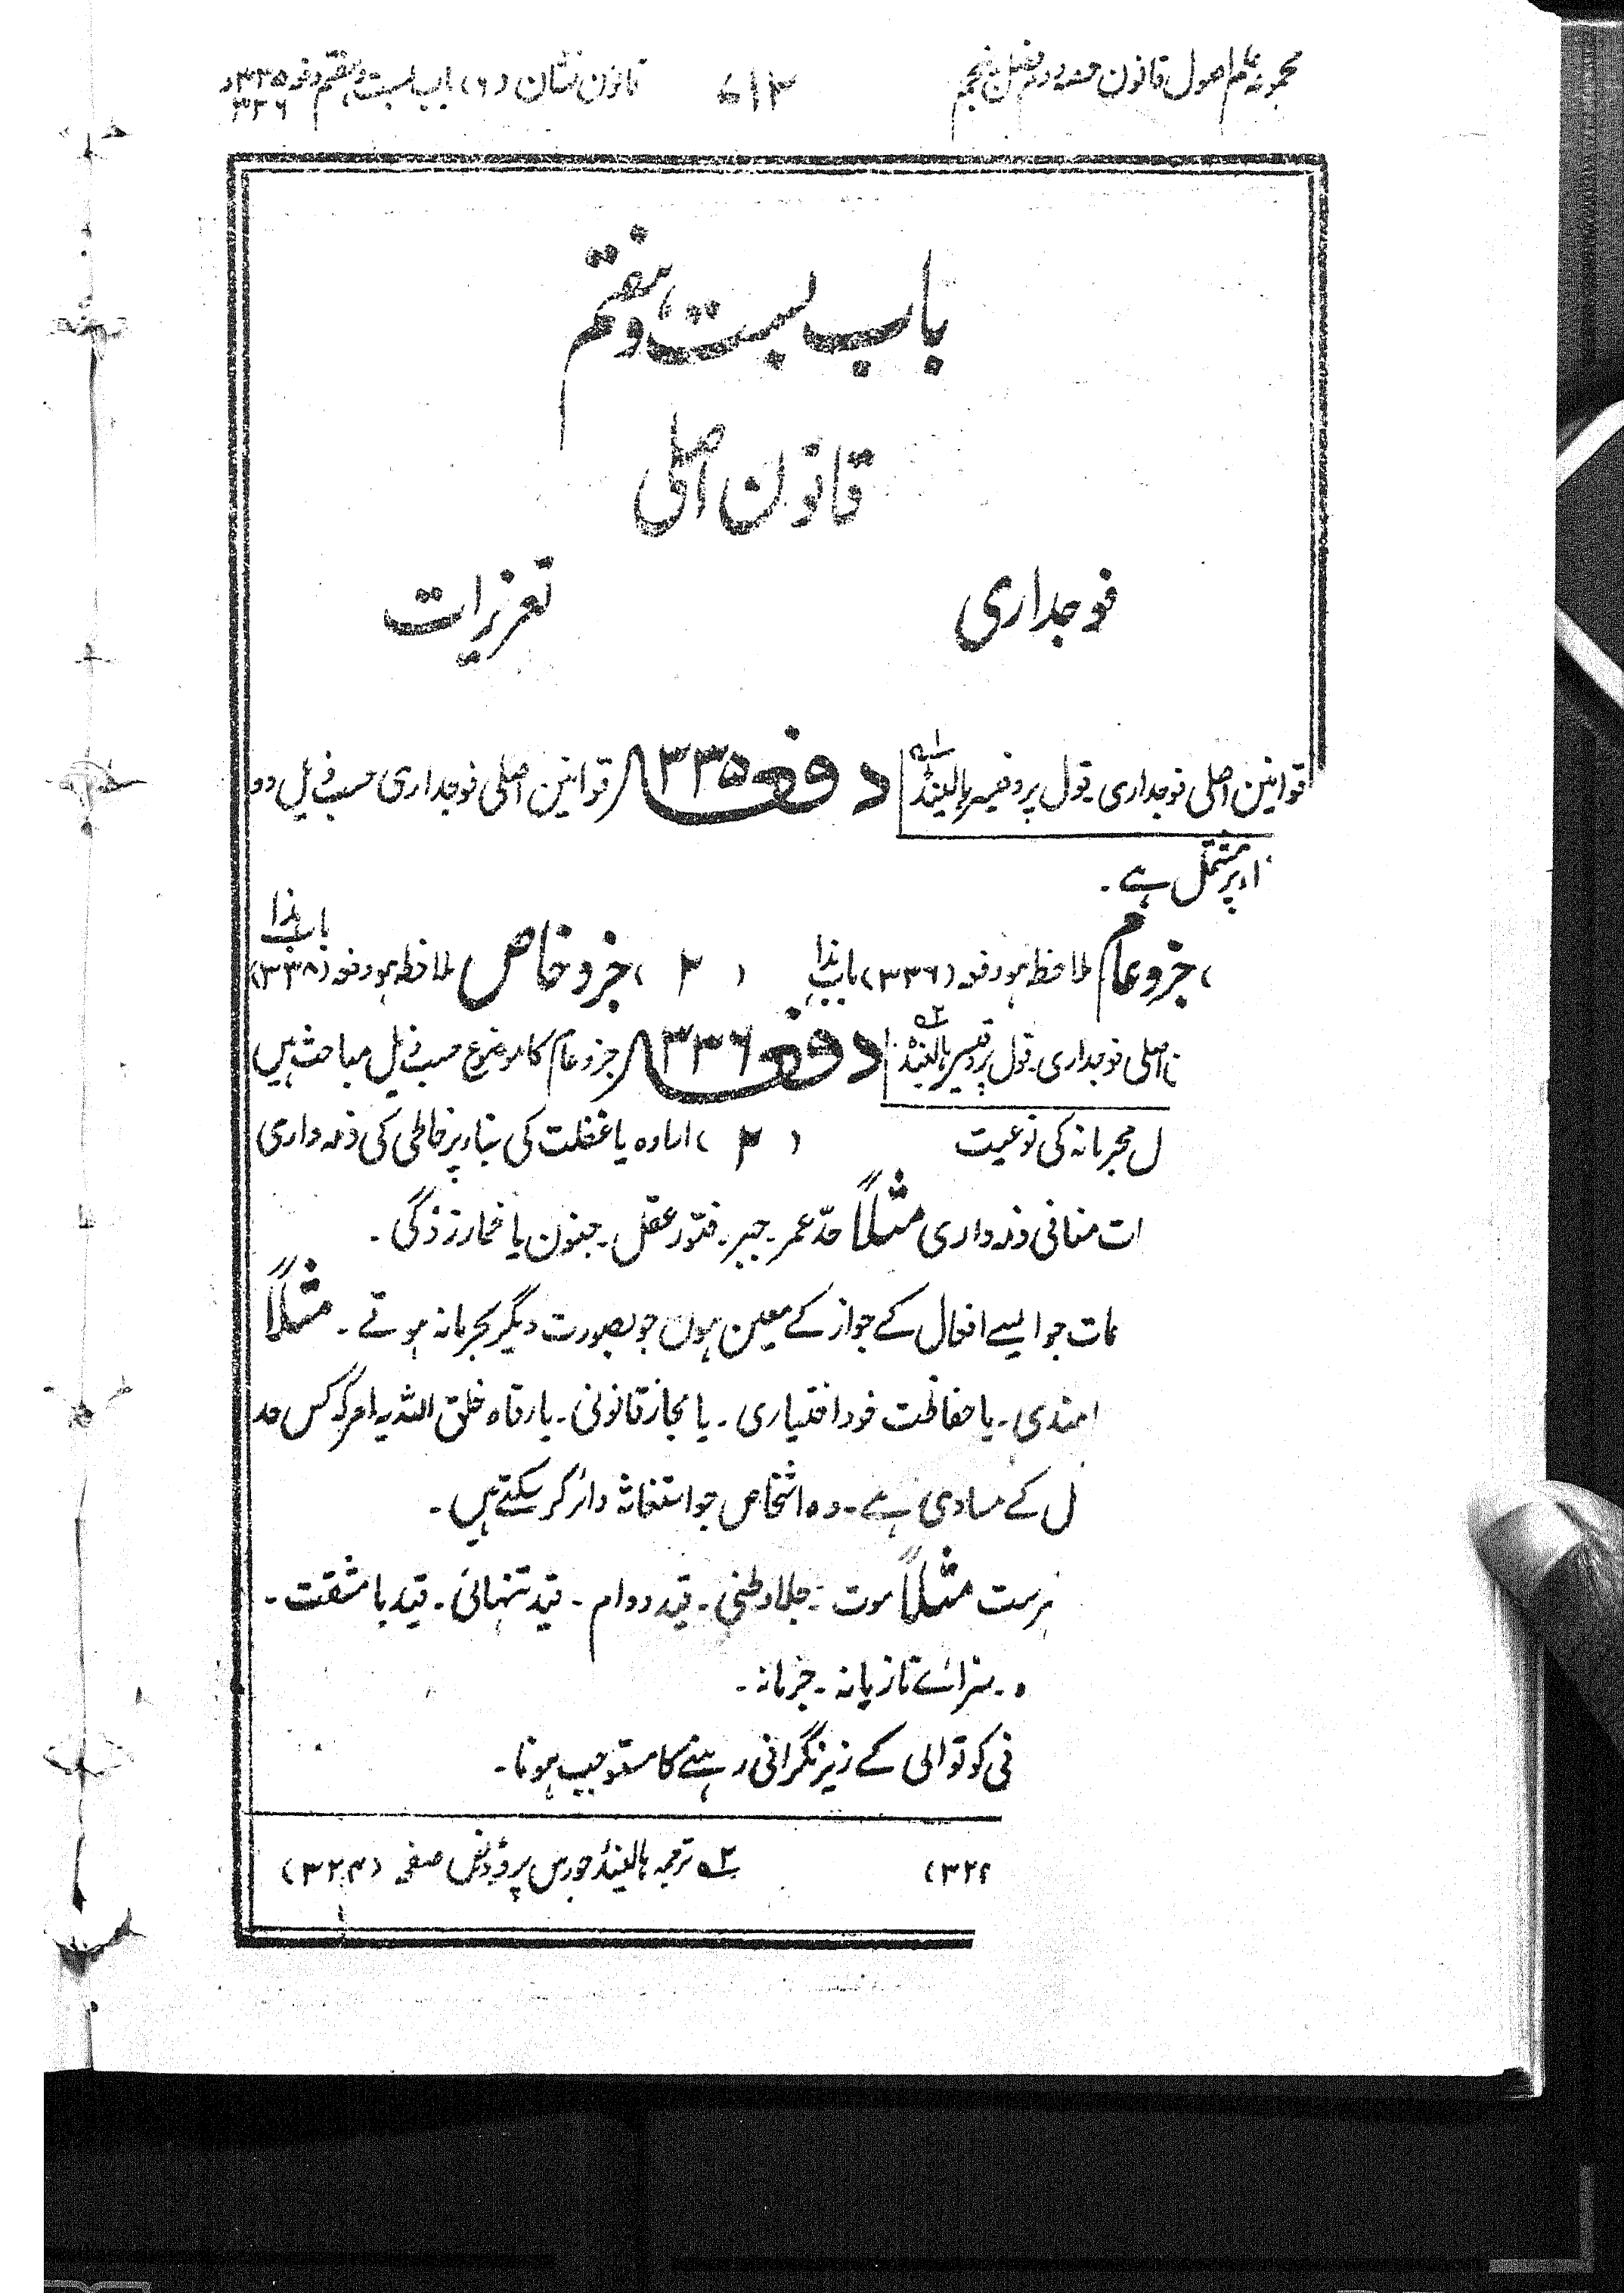 مجموعہ علم اصول قانون حصہ دوم فصل پنجم
۶۱۳
قانون نشان (۶) باب بست و ہفتم دفعہ ۳۳۵ و ۳۳۶
باب بست و ہفتم
قانون اصلی
فوجداری
تعزیرات
قوانین اصلی فوجداری۔ قول پروفیسر ہالینڈ ۱؎ دفعہ ۳۳۵ قوانین اصلی فوجداری حسب ذیل دو
اء پر مشتمل ہے۔
) جزو عام ملاحظہ ہو دفعہ (۳۳۶) باب ہذا (۲) جزو خاص ملاحظہ ہو دفعہ (۳۳۸) باب ہذا
ن اصلی فوجداری۔ قول پروفیسر ہالینڈ ۲؎ دفعہ ۳۳۶ جزو عام کا موضوع حسب ذیل مباحث ہیں
ل مجرمانہ کی نوعیت (۲) ارادہ یا غفلت کی بناء پر خاطی کی ذمہ داری
ات منافی ذمہ داری مثلاً حدّ عمر۔ جبر۔ فتور عقل۔ جنون یا خمار زدگی۔
ات جو ایسے افعال کے جواز کے معین ہوں جو بصورت دیگر مجرمانہ ہوتے۔ مثلاً
امندی۔ یا حفاظت خود اختیاری۔ یا مجاز قانونی۔ یا رفاہ خلق اللہ یہ امر کہ کس حد
ل کے مساوی ہے۔ وہ اشخاص جو استغاثہ دائر کر سکتے ہیں۔
ہرست مثلاً موت۔ جلاوطنی۔ قید دوام۔ قید تنہائی۔ قید بامشقت۔
ہ۔ سزائے تازیانہ۔ جرمانہ۔
نی کوتوالی کے زیر نگرانی رہنے کا مستوجب ہونا۔
۳۲۴) ۲؎ ترجمہ ہالینڈ جورس پروڈنس صفحہ (۳۲۴)